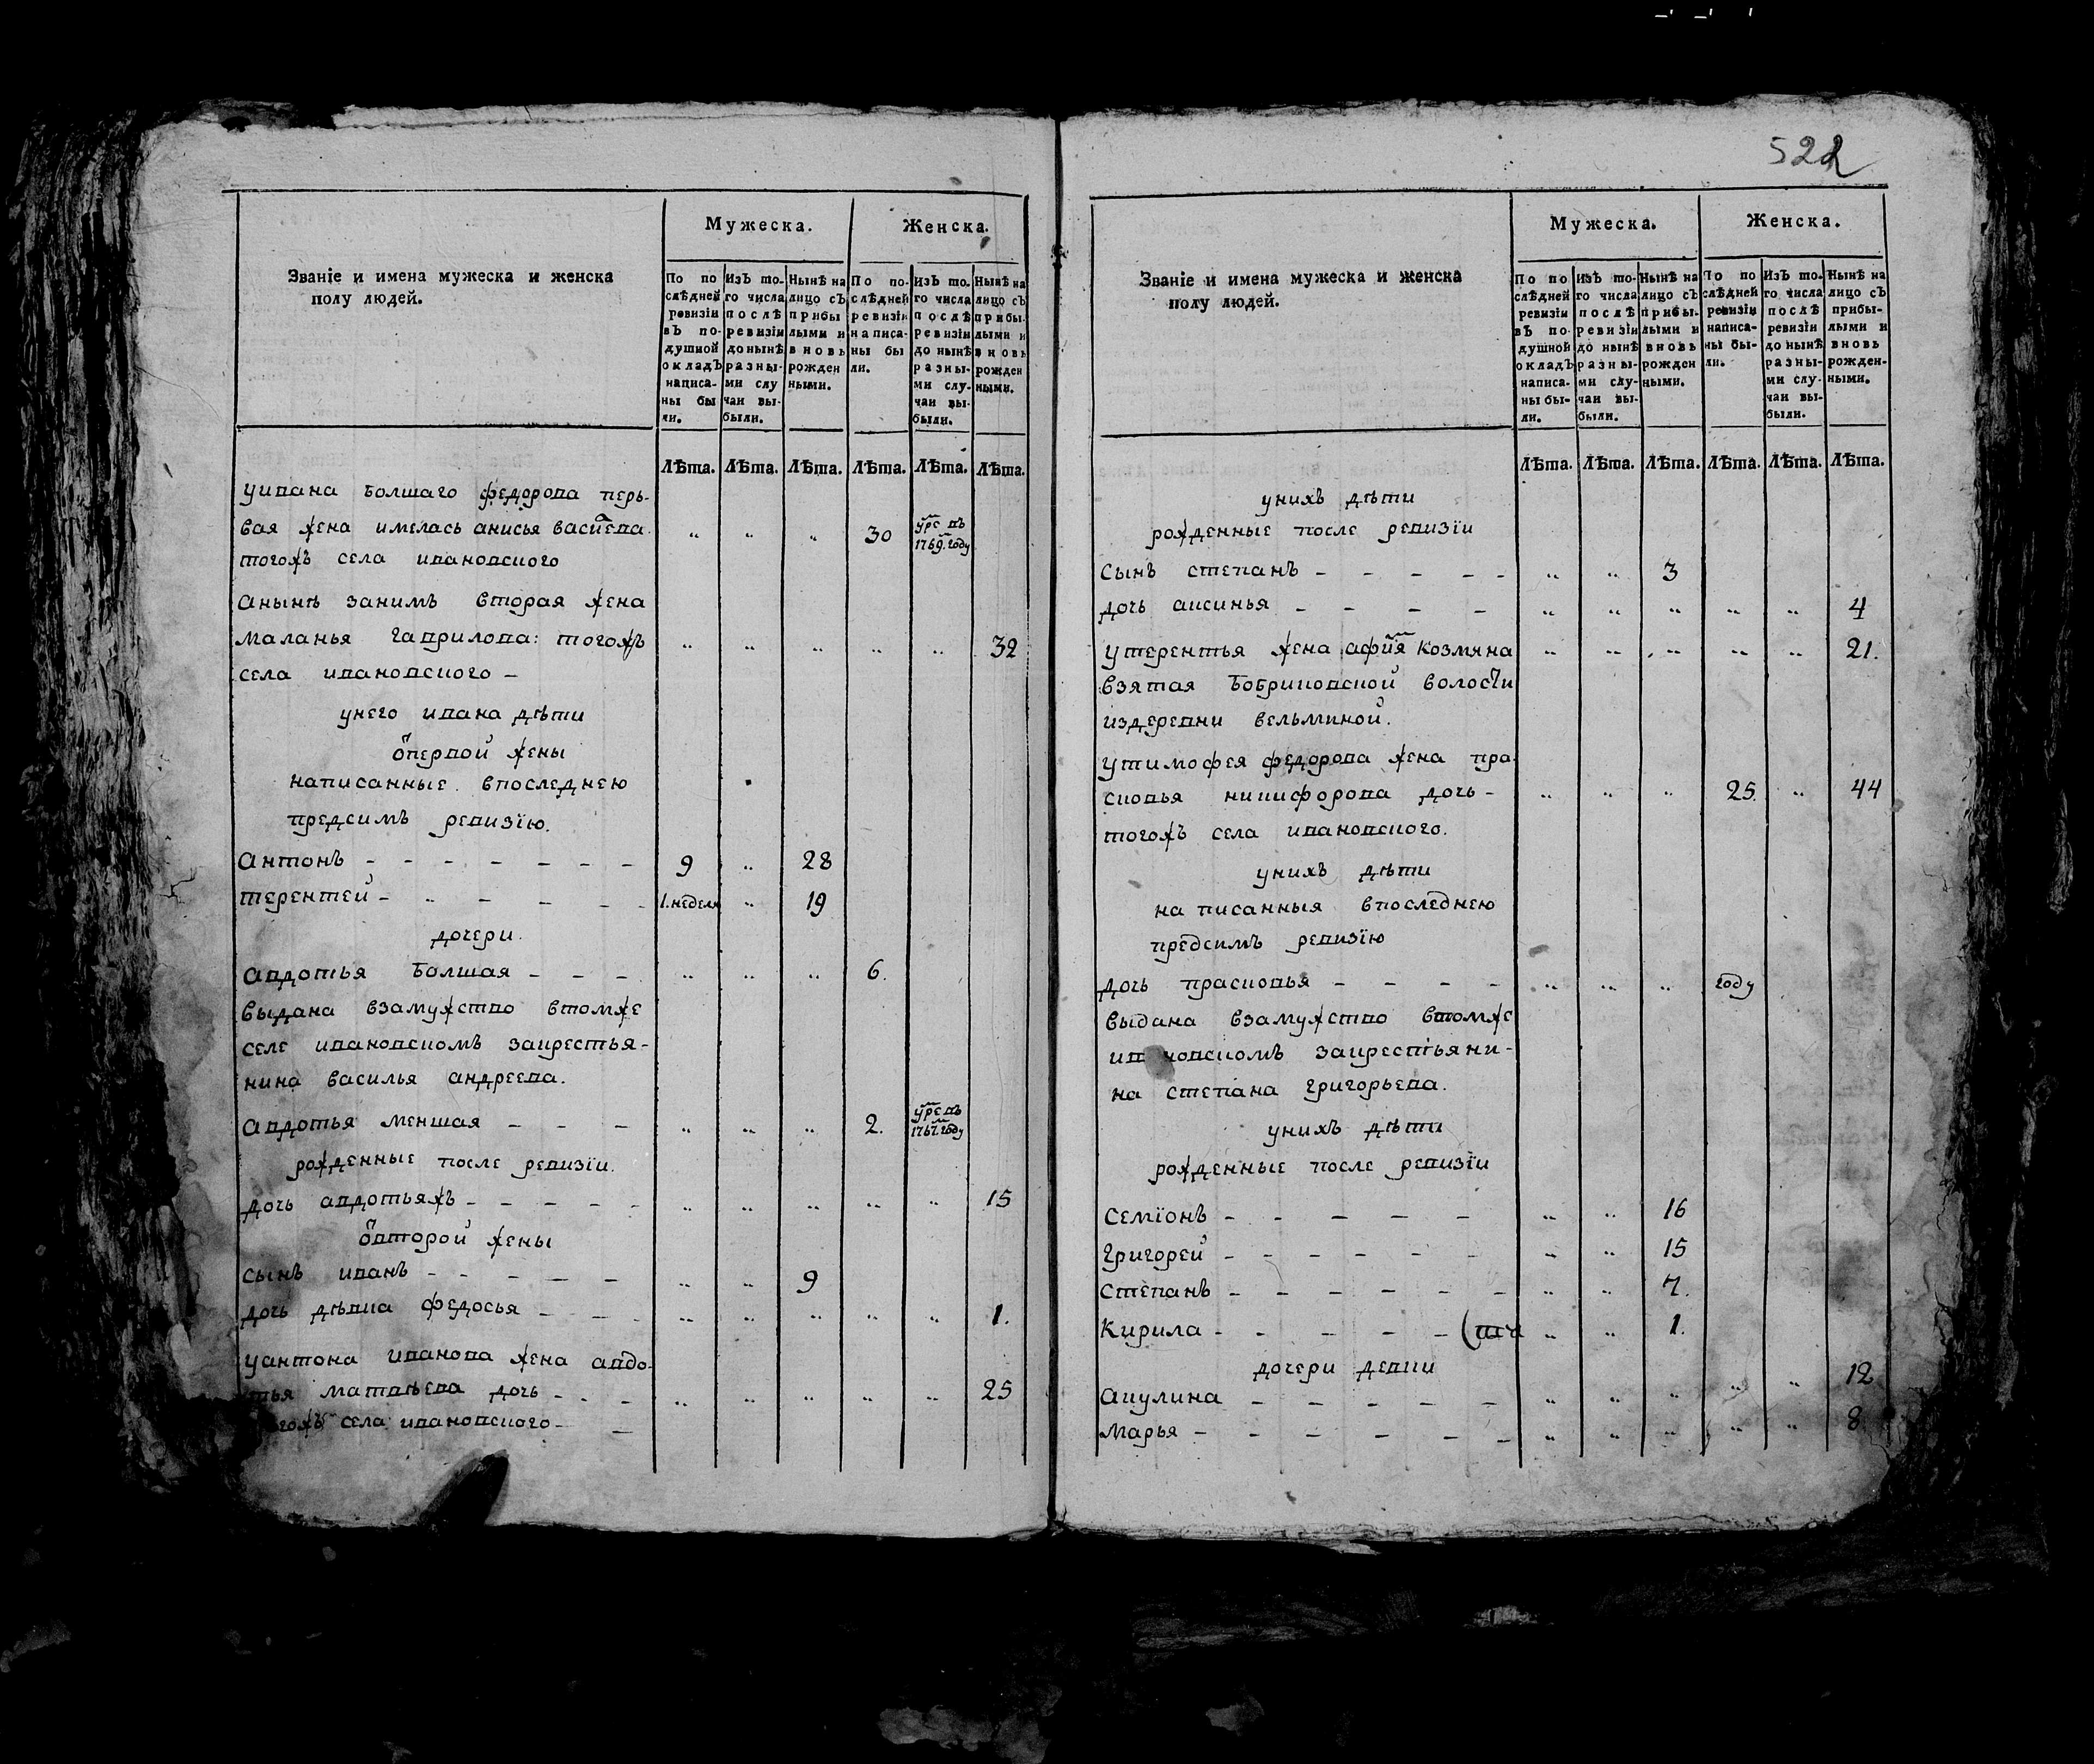 522
Мужеска.
Женска.
Званіе и имена мужеска и женска
полу людей.
По по
слѣдней
ревизіи
въ по-
душной
окладъ
написа-
ны бы
ли.
Изъ то-
го числа
послѣ
ревизіи
до нынѣ
разны-
ми слу
чаи вы-
были.
Нынѣ на
лицо съ
прибы
лыми и
вновь
рожден
ными.
По по-
слѣдней
ревизіи
написа-
ны бы
ли.
Изъ то-
го числа
послѣ
ревизіи
до нынѣ
разны-
ми слу-
чаи вы-
были.
Нынѣ на
лицо съ
прибы-
лыми и
вновь
рожден
ными.
Лѣта. Лѣта. Лѣта. Лѣта. Лѣта. Лѣта.
уивана болшаго федорова перь-
вая жена имелась анисья василева „ „ „ 30 умре въ 1769. году
тогожъ села ивановского
анынѣ занимъ вторая жена
маланья гаврилова: тогожъ „ „ „ „ „ 32
села ивановского –
унего ивана дѣти
ѿпервой жены
написанные впоследнею
предсимъ ревизїю.
антонъ – – – – – – – 9 „ 28
терентей – – – – – – 1. неделя „ 19
дочери.
авдотья болшая – – – „ „ „ 6.
выдана взамужство втомже
селе ивановскомъ закрестья-
нина василья андреева.
авдотья меншая – – – „ „ „ 2. умре въ 1767. году
рожденные после ревизїи.
дочь авдотьяжъ – – – – – „ „ „ „ „ 15
ѿвторой жены
сынъ иванъ – – – – – „ „ 9
дочь дѣвка федосья – – – „ „ „ „ „ 1.
уантона иванова жена авдо-
тья матвѣева дочь – – – „ „ „ „ „ 25
тогожъ села ивановского – –
Мужеска.
Женска.
Званіе и имена мужеска и женска
полу людей.
По по
слѣдней
ревизіи
въ по-
душной
окладъ
написа-
ны бы-
ли.
Изъ то-
го числа
послѣ
ревизіи
до нынѣ
разны-
ми слу-
чаи вы-
были.
Нынѣ на
лицо съ
прибы-
лыми и
вновь
рожден
ными.
По по
слѣдней
ревизіи
написа-
ны бы-
ли.
Изъ то-
го числа
послѣ
ревизіи
до нынѣ
разны-
ми слу-
чаи вы-
были.
Нынѣ на
лицо съ
прибы-
лыми и
вновь
рожден-
ными.
Лѣта. Лѣта. Лѣта. Лѣта. Лѣта. Лѣта.
унихъ дѣти
рожденные после ревизїи
сынъ степанъ – – – – – „ „ 3
дочь аксинья – – – – „ „ „ „ „ 4
утерентья жена афимия козмина „ „ „ „ „ 21.
взятая бобриковской волости
издеревни вельминой.
утимофея федорова жена пра-
сковья никифорова дочь – „ „ „ 25. „ 44
тогожъ села ивановского.
унихъ дѣти
написанныя впоследнею
предсимъ ревизїю
дочь прасковья – – – – „ „ „ году
выдана взамужство втомже
ивановскомъ закрестьяни-
на степана григорьева.
унихъ дѣти
рожденные после ревизїи
семїонъ – – – – – „ „ 16
григорей – – – – – – „ „ 15
степанъ – – – – – – „ „ 7.
кирила – – – – – „ „ 1.
дочери девки
акулина – – – – – „ „ „ „ „ 12
марья – – – – – – „ „ „ „ „ 8.